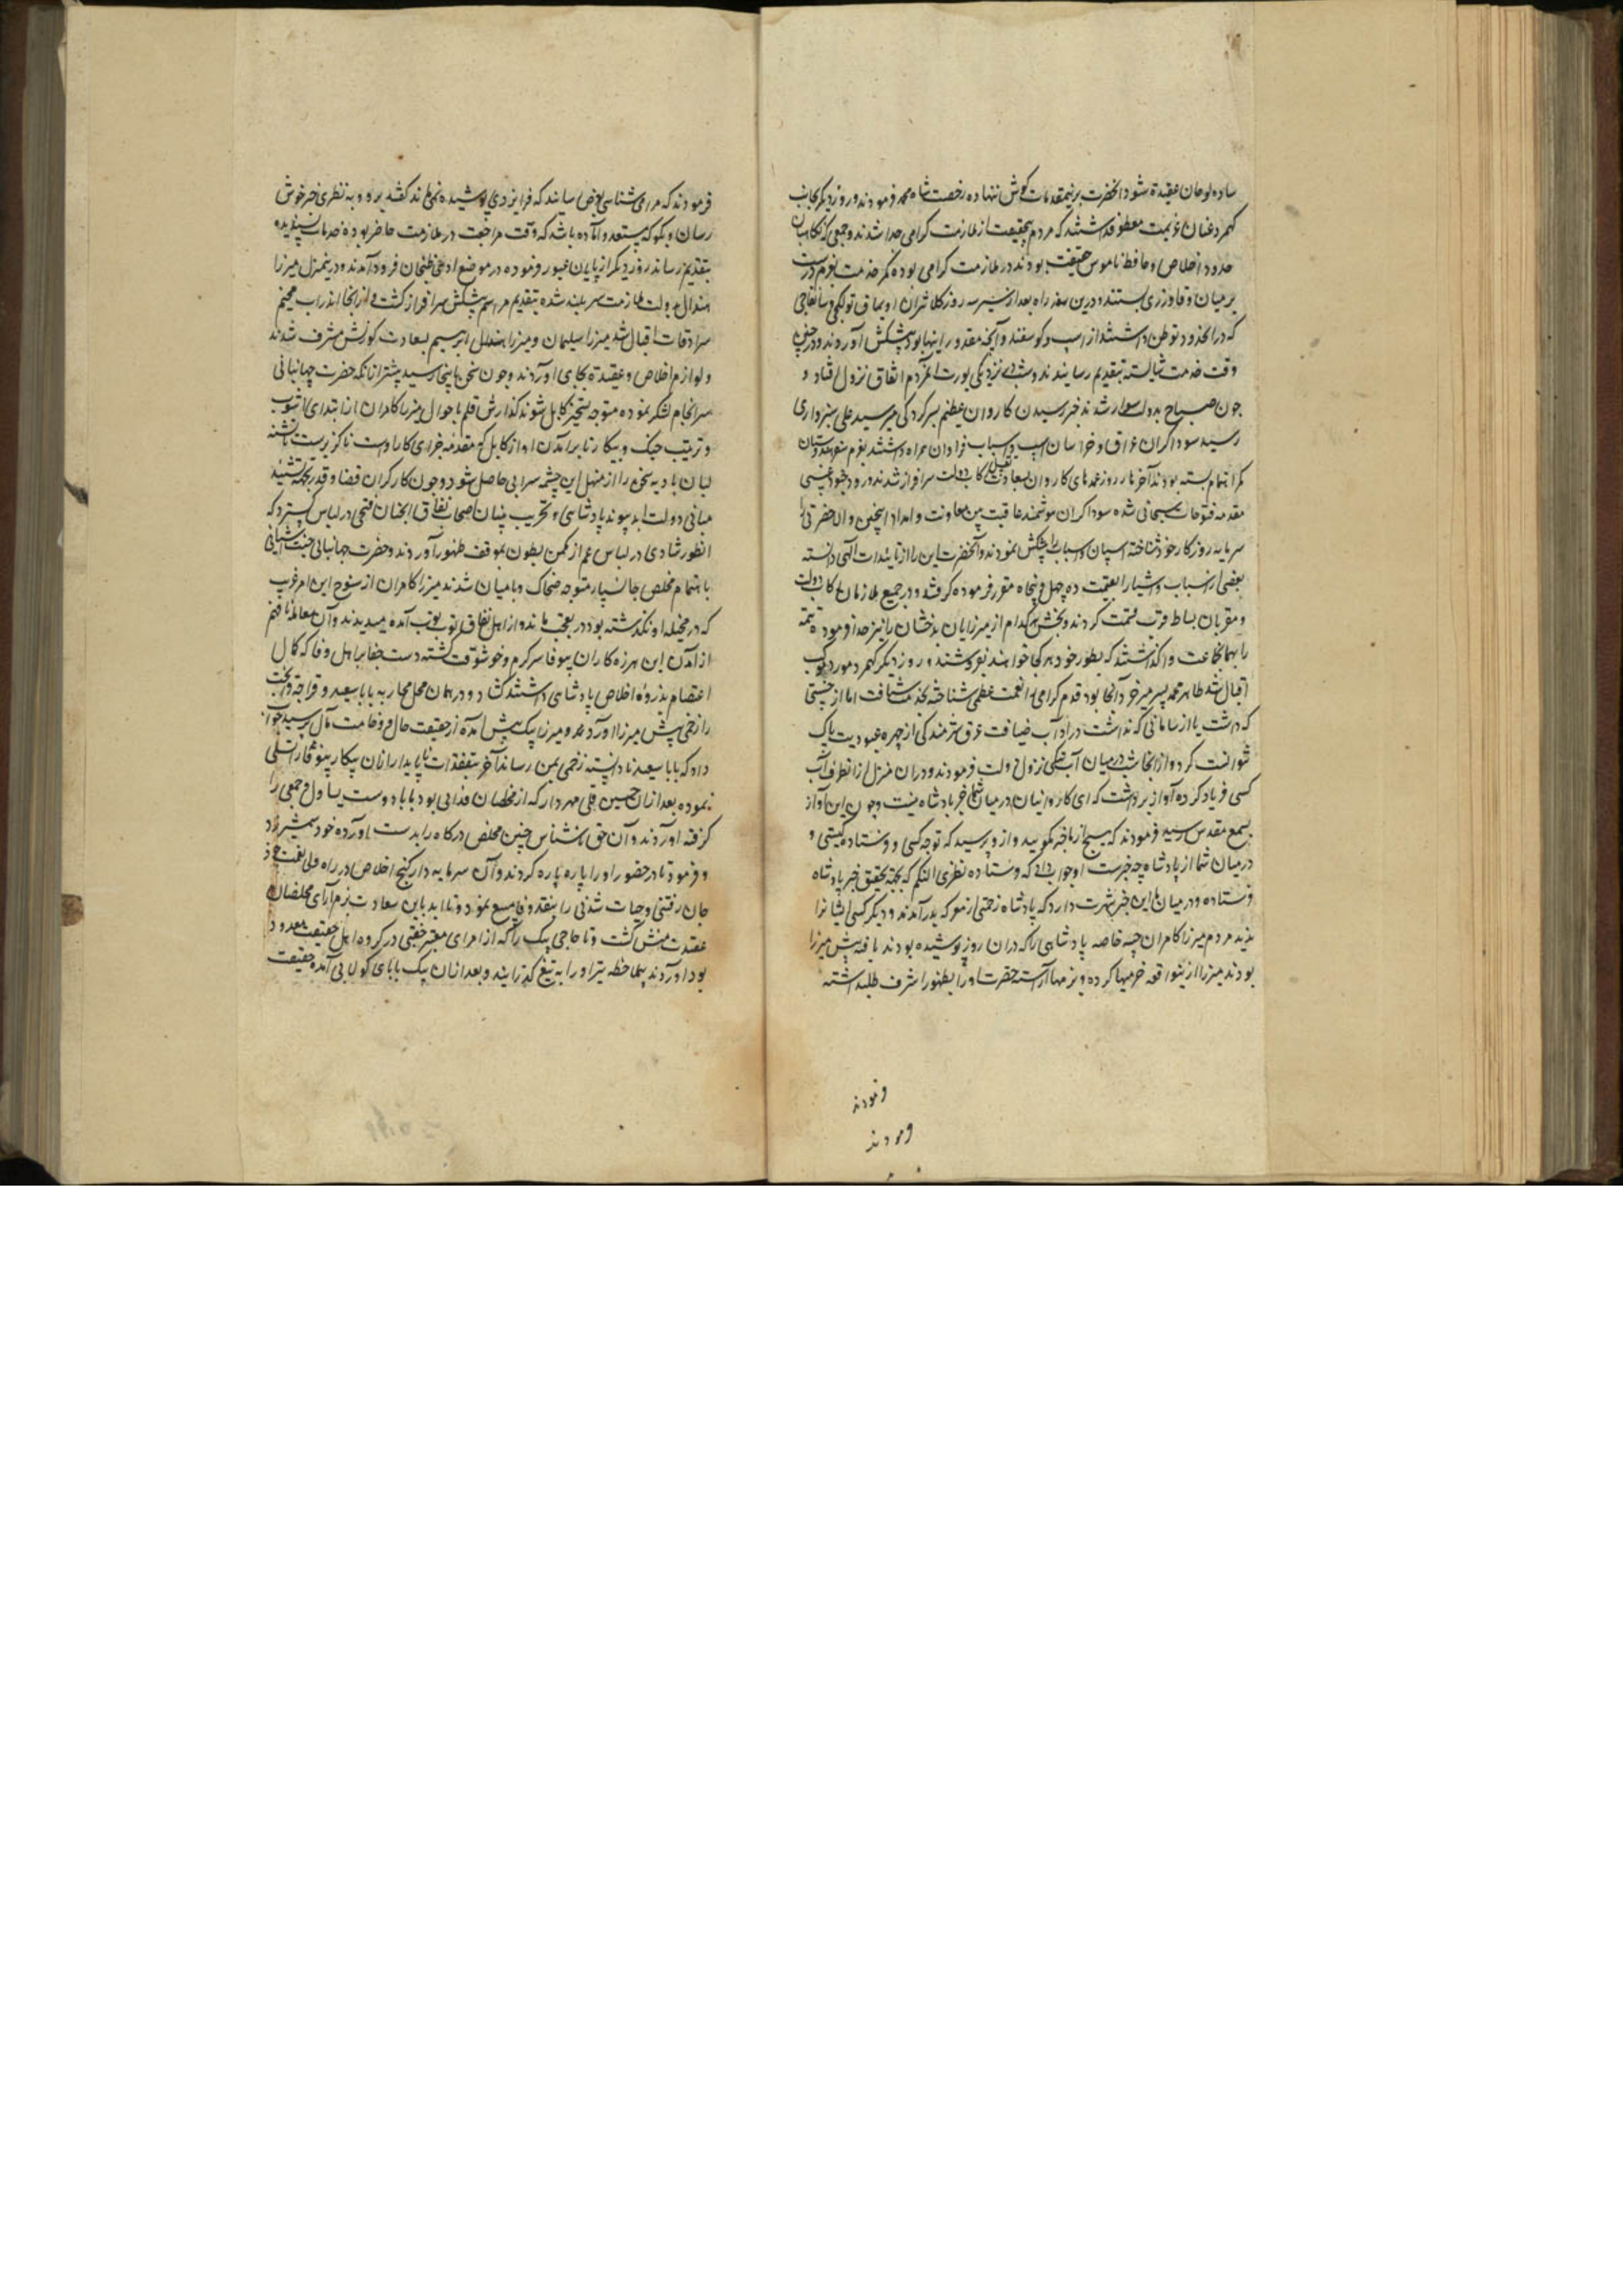 ساده لوحان عقیدة شود آنحضرت برینمقدمات گوش ننهاده رخصت شاه محمد فرمودند و روز دیگر بجانب
کهمرد عنان عزیمت معطوف داشتند که مردم بیحقیقت از ملازمت گرامی جدا شدند و جمعی که نگاهبان
حدود اخلاص و حافظ ناموس حقیقت بودند در ملازمت گرامی بوده کمر خدمت بعزم درست
بر میان وفاورزی بستند و درین سفر راه بعد از سیر سه روز کلانتران اویماق تولکجی و سانقاچی
که در آنحدود توطن داشتند از اسپ و گوسفند و آنچه مقدور اینها بود پیشکش آوردند و در چنین
وقت خدمت شایسته بتقدیم رسانیدند و شب در نزدیکی یورت آنمردم اتفاق نزول افتاد و
چون صباح بدولت سوار شدند خبر رسیدن کاروان عظیم بسرکردگی میر سید علی سبزواری
رسید سوداگران عراق و خراسان اسپ و اسباب فراوان همراه داشتند بعزم سفر هندوستان
کمر اهتمام بسته بودند آخرهای روز عمدهای کاروان بسعادت تقبیل رکاب دولت سرافراز شدند و ورود جنود غیبی
مقدمه فتوحات سبحانی شده سوداگران هوشمند عاقبت بین معاونت و امداد اینچنین والاحضرتی را
سرمایه روزگار خود شناخته اسپان و اسباب را پیشکش نمودند و آنحضرت این را از تائیدات الهی دانسته
بعضی از اسباب و اشیا را بقیمت ده چهل و پنجاه مقرر فرموده گرفتند و در جمیع ملازمان رکاب دولت
و مقربان بساط قرب قسمت کردند و بخش هر کدام از میرزایان بدخشان را نیز جدا فرموده تتمه
را بهمانجماعت واگذاشتند که بطور خود هر کجا خواهند بفروشند و روز دیگر کهمرد مورد موکب
اقبال شد طاهر محمد پسر میر خرد آنجا بود قدم گرامی را نعمت عظمی شناخته بخدمت شتافت اما از خستی
که داشت یا از سامانی که نداشت در آداب ضیافت عرق شرمندگی از چهره عبودیت پاک
نتوانست کرد و از آنجا شب در میان آب بنگی نزول دولت فرمودند و در ان منزل از انطرف آب
کسی فریاد کرده آواز برداشت که ای کاروانیان در میان شما خبر پادشاه هست و چون این آواز
بسمع مقدس رسید فرمودند که هیچ از ما خبر مگویید و ازو پرسید که تو چه کسی و فرستاده کیستی و
در میان شما از پادشاه چه خبر است او جواب داد که فرستاده نظری النکم که بجهة تحقیق خبر پادشاه
فرستاده و در میان ما این خبر شهرت دارد که پادشاه زخمی از معرکه بدر آمدند و دیگر کسی ایشانرا
ندید مردم میرزا کامران جیبه خاصه پادشاهی را که در ان روز پوشیده بودند یافته پیش میرزا
بودند میرزا از ینواقعه خرمیها کرده و بزمها آراسته حضرت او را بحضور اشرف طلبداشته
فرمودند که مرا می شناسی بعرض رسانید که فر ایزدی پوشیده نمی ماند گفتند برو و به نظری خبر خوش
رسان و بگو که مستعد و آماده باشد که وقت مراجعت در ملازمت حاضر بوده خدمات پسندیده
بتقدیم رساند روز دیگر از پایان عبور فرموده در موضع اولنگ خنجان فرود آمدند و در ینمنزل میرزا
هندال بدولت ملازمت سربلند شده بتقدیم مراسم پیشکش سرافراز گشت و از انجا اندراب مخیم
سرادقات اقبال شد میرزا سلیمان و میرزا هندال ابراهیم بسعادت کورنش مشرف شدند
و لوازم اخلاص و عقیدة بجای آوردند و چون سخن باینجا رسید پیشتر ازانکه حضرت جهانبانی
سرانجام لشکر نموده متوجه تسخیر کابل شوند گذارش قلم باحوال میرزا کامران از ابتدای آشوب
و ترتیب جنگ و پیکار تا برآمدن او از کابل که مقدمه جزای کار اوست ناگزیر است تا تشنه
لبان بادیه سخن را از منهل این چشمه سیرابی حاصل شود و چون کارگران قضا و قدر بجهة تشیید
مبانی دولت ابد پیوند پادشاهی و تخریب بنیان اصحاب نفاق آنچنان فتحی در لباس گسترد که
انطور شادی در لباس غم از مکمن بطون بموقف ظهور آوردند و حضرت جهانبانی جنت آشیانی
باهتمام مخلص جانسپار متوجه ضحاک و بامیان شدند میرزا کامران از سنوح این امر غریب
که در مخیله او نگذشته بود در تعجب مانده و از اهل نفاق نوبت بنوبت آمده میدیدند و آن معامله نافهم
از آمدن این هرزه کاران بیوفا سرگرم و خوشوقت گشته دست جفا بر اهل وفا که کمال
اعتصام بذروه اخلاص پادشاهی داشتند گشاد و در همان محل محاربه بابا سعید قراجه قراب‌خت
را زخمی پیش میرزا آوردند و میرزا بیک پیش آمده از حقیقت حال و وخامت مآل پرسید جواب
داد که بابا سعید نادانسته زخمی بمن رساند آخر بتفقدات ناپایدار آنان پیکار بیوقار را تسلی
نموده بعد ازان حسین قلی مهردار که از مخلصان فدائی بود بابا دوست یساول و جمعی را
گرفته آوردند و آن حق ناشناس چنین مخلص درگاه را بدست آورده خود شمشیر زد
و فرمود تا در حضور او را پاره پاره کردند و آن سرمایه دار گنج اخلاص در راه ولی نعمت خود
جان رفتنی و حیات شدنی را بنقد وفا مبیع نمود و تا ابد باین سعادت بزم آرای مخلصان
عقیدت منش گشت و تا حاجی بیک را که از امرای معتبر حقیقی در گروه اهل حقیقت معدود
بود آوردند بملاحظه تیر او را به تیغ گذرانیدند و بعد ازان بیک بابای کولابی آمده حقیقت
فرمودند
فرمودند